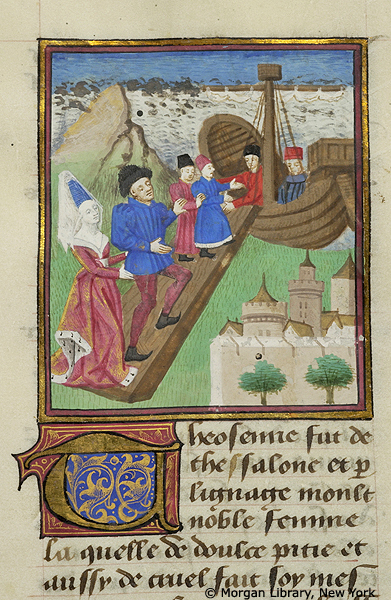 Theosenne fut de
thessalone et p
lignage moult
noble femme
la quelle de doulce pitie et
aussy de cruel fait soy mes
© Morgan Library, New York